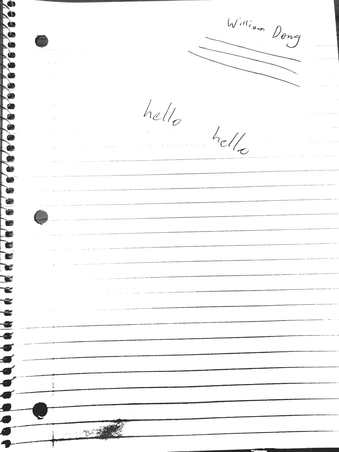 William Dong
hello
hello